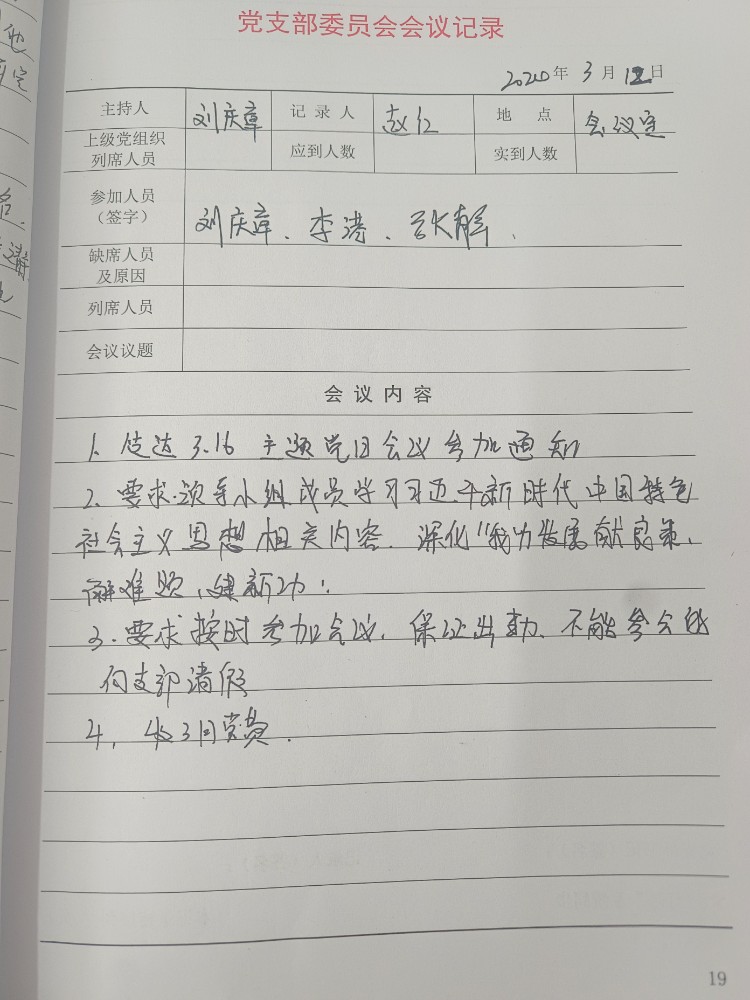 党支部委员会会议记录
2020年 3月 12日
主持人 刘庆章 记录人 赵仁 地点 会议室
上级党组织
列席人员 应到人数 实到人数
参加人员
(签字) 刘庆章、李涛、
缺席人员
及原因
列席人员
会议议题
会议内容
1. 传达3.16 主题党日会议参加通知
2. 要求领导小组成员学习习近平新时代中国特色
社会主义思想相关内容. 深化"我为发展献良策、
解难题、建新功:
3. 要求按时参加会议, 保证出勤、不能参会的
向支部请假
4, 收3月党费.
19